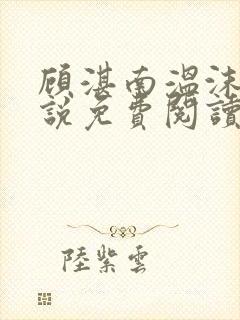 顾湛南溫沫
說免費閱讀
陸紫雲